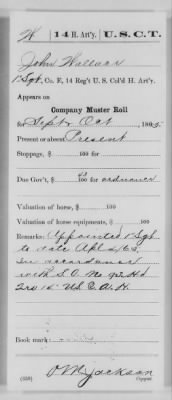 W 14 H. Art'y. U.S.C.T.
John Wallace
1 Sgt, Co. E, 14 Reg't U. S. Col'd H. Art'y.
Appears on
Company Muster Roll
for Sept & Oct, 1865.
Present or absent Present
Stoppage, $ 100 for
Due Gov't, $ 100 for ordnance
Valuation of horse, $ 100
Valuation of horse equipments, $ 100
Remarks: Appointed 1 Sgt
to date Apl 2/65
in accordance
with S.O. No 92 Hd
2rs 14 U.S.C.A.H.
Book mark:
O M Jackson
(358) Copyist.